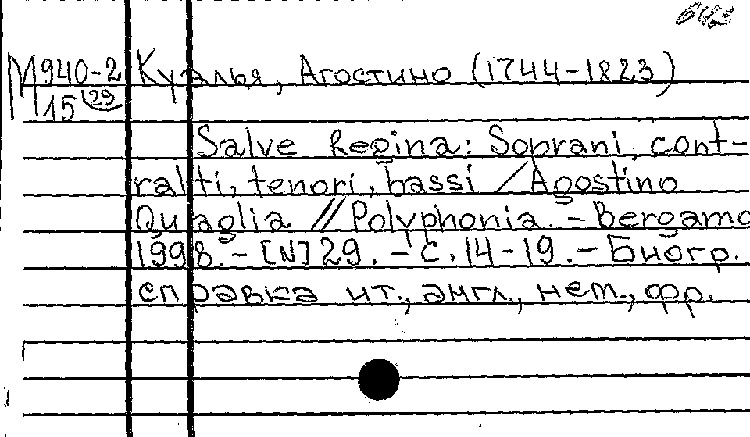 М940-2 Куалья, Агостино (1744-1823)
15 29
Salve Regina: Soprani, cont-
ralti, tenori, bassi / Agostino
Quaglia // Polyphonia. - Bergamo
1998. - [N] 29. - С. 14-19. - Биогр.
справка ит., англ., нем., фр.